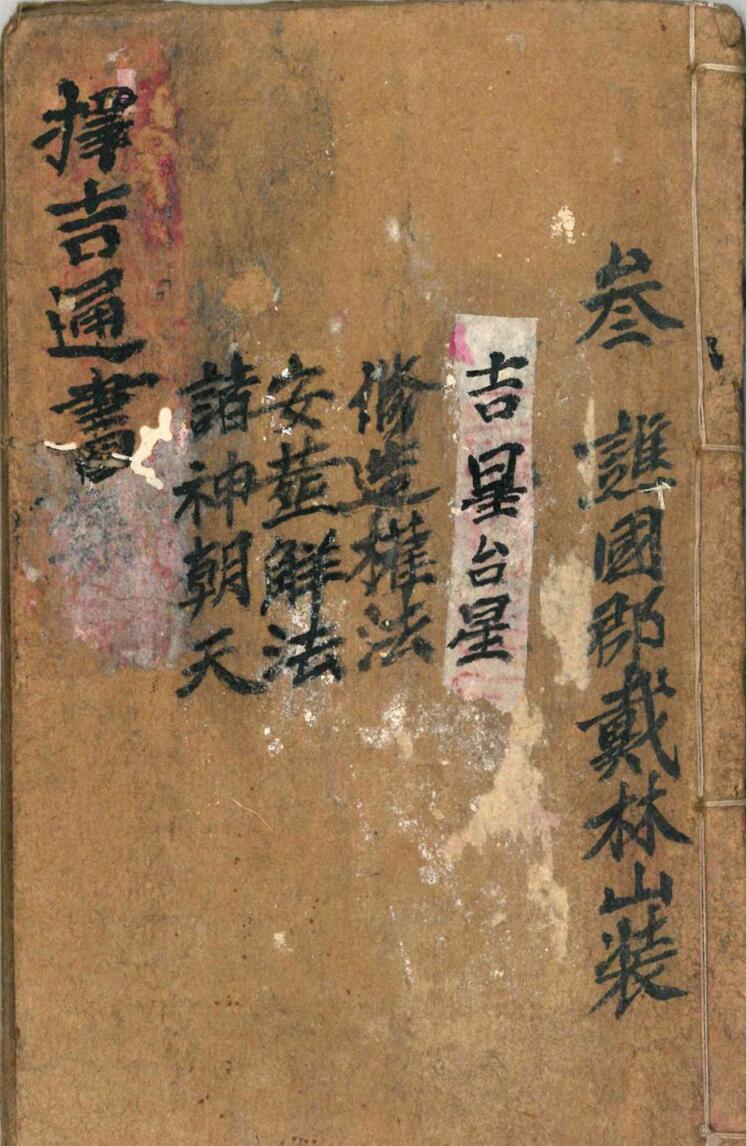 叁 譙國郡戴林山装
吉星台星
修造權法
安葬解法
諸神朝天
擇吉通書